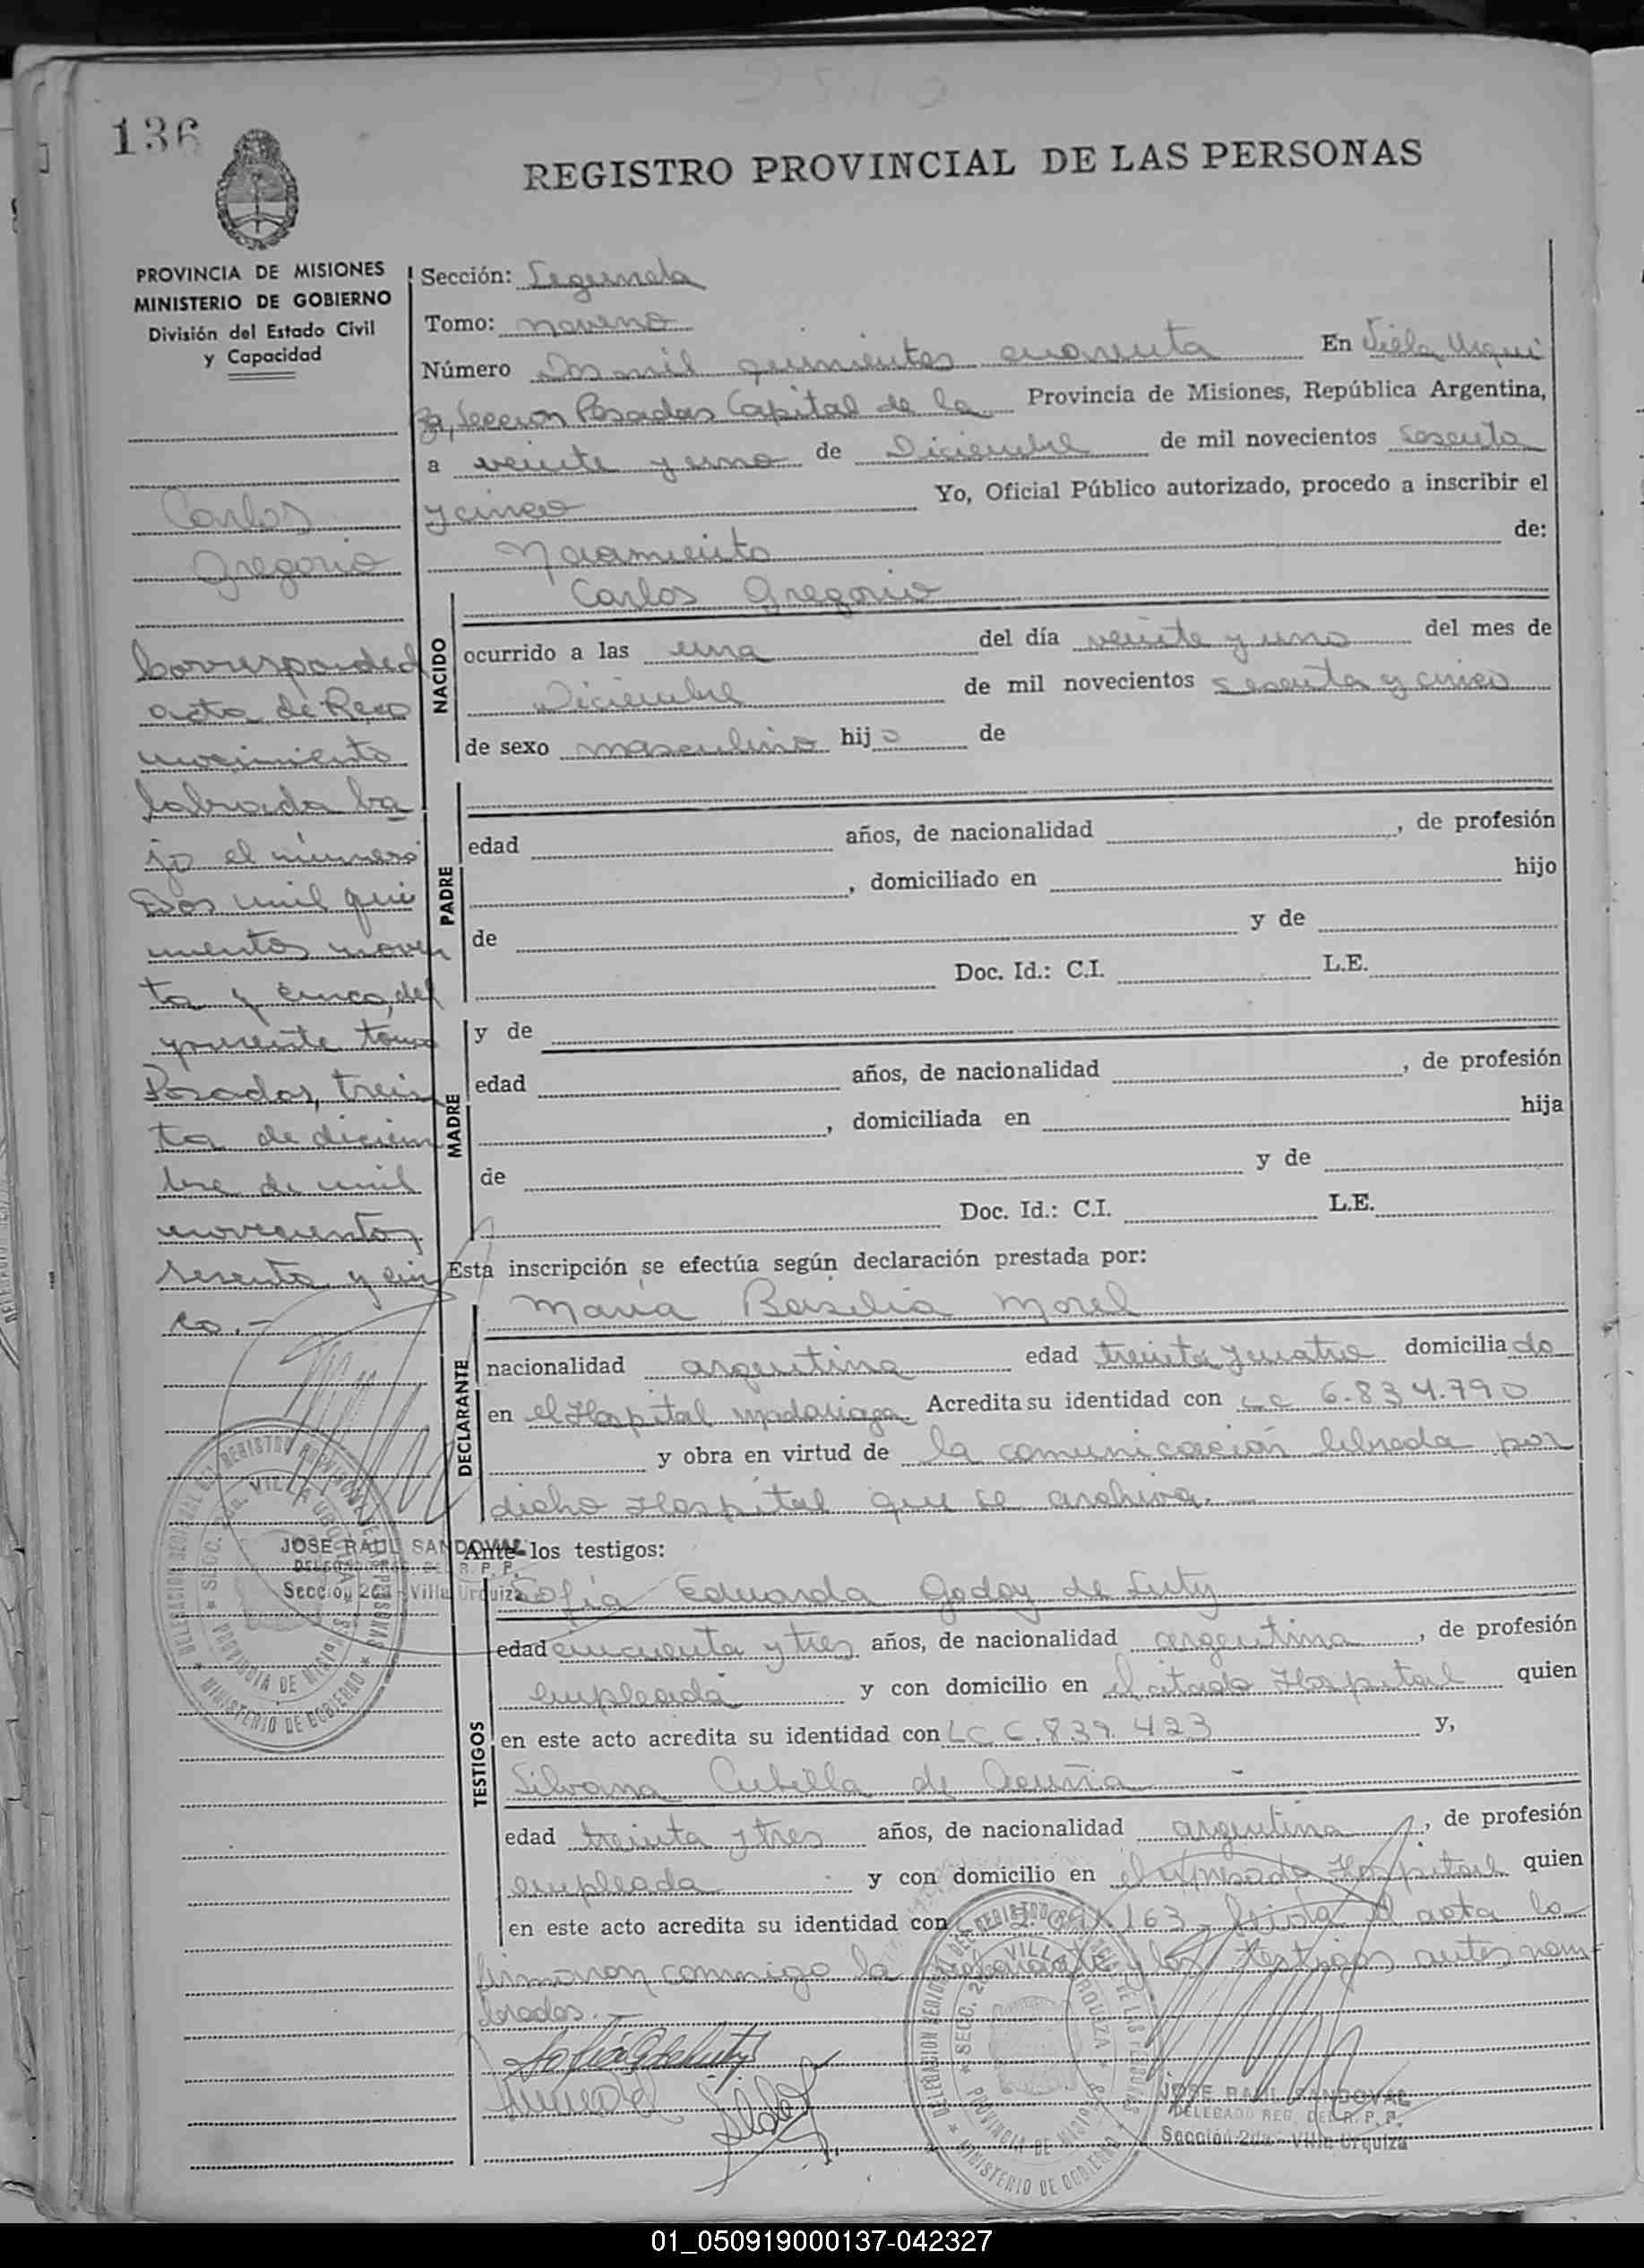 136
REGISTRO PROVINCIAL DE LAS PERSONAS
PROVINCIA DE MISIONES
MINISTERIO DE GOBIERNO
División del Estado Civil
y Capacidad
Carlos
Gregorio
Corresponde el
acta de Reco
nocimiento
labrada ba
jo el número
Dos mil qui
nientos noven
ta y cinco, del
presente tomo
Posadas, trein
ta de diciem
bre de mil
novecientos
sesenta y cin
co.-
Sección: Segunda
Tomo: noveno
Número Dos mil quinientos cuarenta En Villa Urqui
za, Seccion Posadas Capital de la Provincia de Misiones, República Argentina,
a veinte y uno de Diciembre de mil novecientos sesenta
y cinco Yo, Oficial Público autorizado, procedo a inscribir el
Nacimiento de:
NACIDO
Carlos Gregorio
ocurrido a las una del día veinte y uno del mes de
Diciembre de mil novecientos sesenta y cinco
de sexo masculino hijo de
PADRE
edad años, de nacionalidad , de profesión
, domiciliado en hijo
de y de
Doc. Id.: C.I. L.E.
MADRE
y de
edad años, de nacionalidad , de profesión
, domiciliada en hija
de y de
Doc. Id.: C.I. L.E.
Esta inscripción se efectúa según declaración prestada por:
DECLARANTE
Maria Basilia Morel
nacionalidad argentina edad treinta y cuatro domiciliado
en el Hospital Madariaga Acredita su identidad con LC 6.834.790
y obra en virtud de la comunicación librada por
dicho Hospital que se archiva.
Ante los testigos:
TESTIGOS
Sofía Eduarda Godoy de Luty
edad cincuenta y tres años, de nacionalidad argentina, de profesión
empleada y con domicilio en el citado Hospital quien
en este acto acredita su identidad con LC 6.839.423 y,
Silvana Cubilla de Acuña
edad treinta y tres años, de nacionalidad argentina, de profesión
empleada y con domicilio en el Hospital quien
en este acto acredita su identidad con 163 acta la
firmaron conmigo la declarante y los testigos antes nom
brados.-
JOSE RAUL SANDOVAL
DELEGADO REG. DEL R. P. P.
Sección 2da - Villa Urquiza
DELEGACION REGIONAL DEL REGISTRO PROVINCIAL DE LAS PERSONAS
SECC. 2da. VILLA URQUIZA
PROVINCIA DE MISIONES
MINISTERIO DE GOBIERNO
JOSE RAUL SANDOVAL
DELEGADO REG. DEL R. P. P.
Sección 2da - Villa Urquiza
01_050919000137-042327